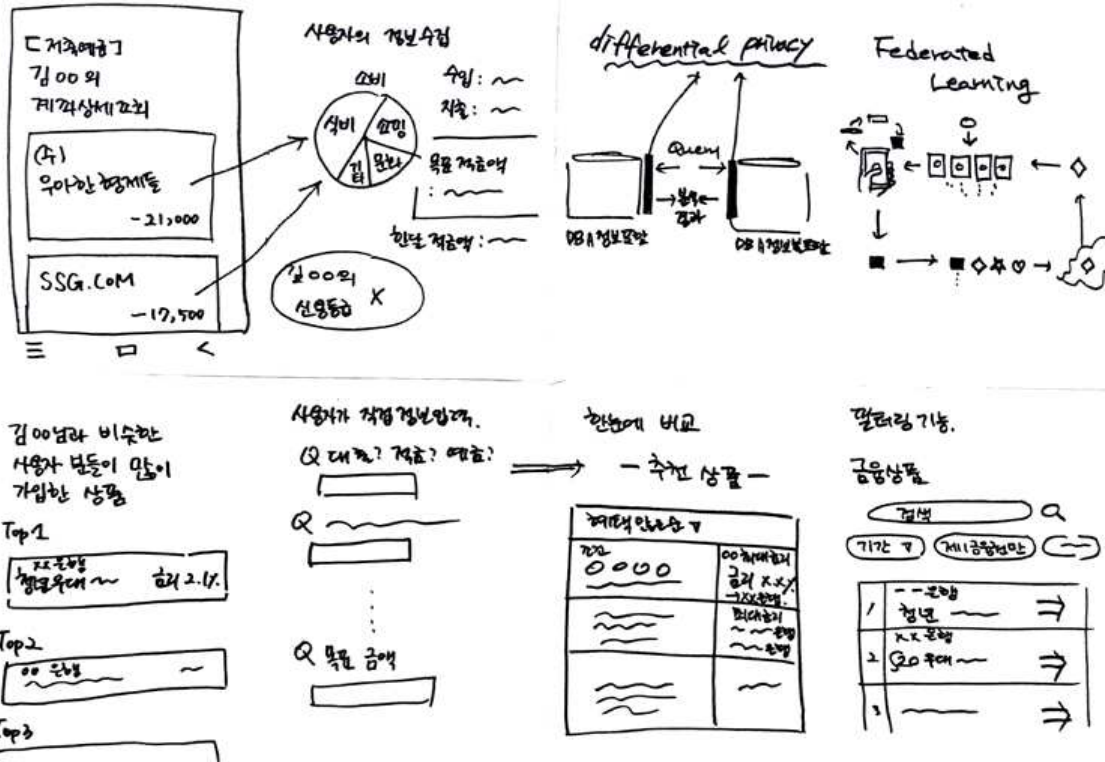 [저축예금]
김00의
계좌상세조회
(주)
우아한형제들
-21,000
SSG.COM
-17,500
사용자의 정보수집
소비
식비
쇼핑
문화
기타
수입:
지출:
목표 적금액
:
한달 적금액:
김00의
신용등급 X
differential privacy
Query
결과
Federated
Learning
김00님과 비슷한
사용자 분들이 많이
가입한 상품
Top1
xx은행
청년우대
금리 2.1%
Top2
00 은행
Top3
사용자가 직접 정보입력.
Q 대출? 적금? 예금?
Q
Q 목표 금액
한눈에 비교
- 추천 상품 -
혜택 많은순
0000
00 최대금리
금리 x.x%
→xx은행.
최대금리
은행
은행
필터링 기능.
금융상품
검색
기간
제1금융권만
1
--은행
청년
2
xx은행
우대
3